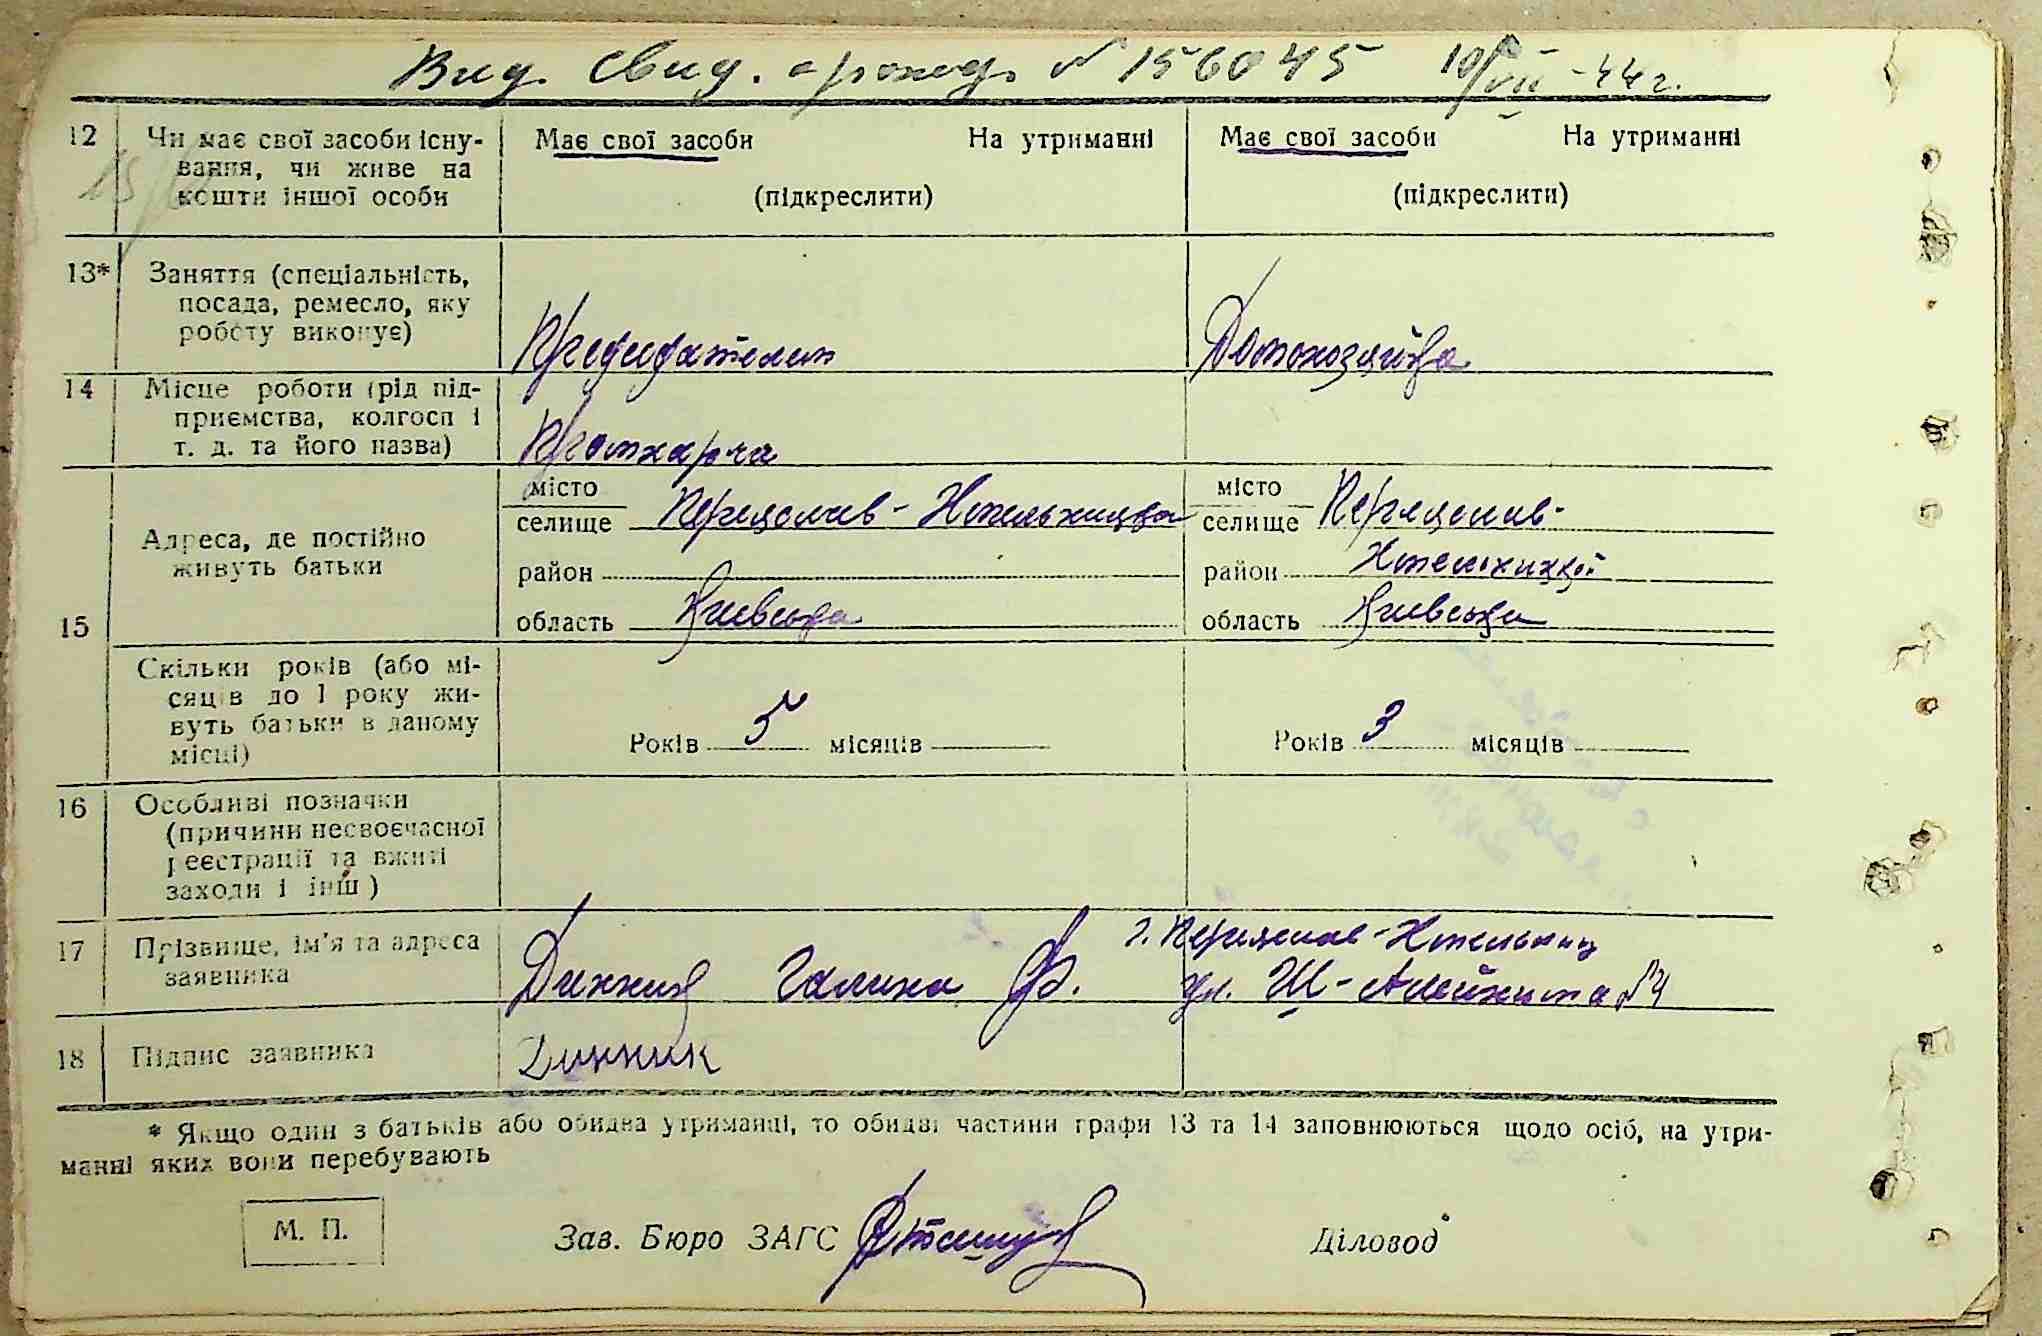 Вид. Свид. о рожд. № 156045 10/VII-44 г.
12 Чи має свої засоби існу- Має свої засоби На утриманні Має свої засоби На утриманні
вання, чи живе на
кошти іншої особи (підкреслити) (підкреслити)
13* Заняття (спеціальність,
посада, ремесло, яку
роботу виконує) Председателем Домохозяйка
14 Місце роботи (рід під-
приємства, колгосп і
т. д. та його назва) Промхарча
15 Адреса, де постійно
живуть батьки
місто місто
селище Переяслав-Хмельницька селище Переяслав-
район район Хмельницкой
область Київська область Київська
Скільки років (або мі-
сяців до 1 року жи-
вуть батьки в даному
місці) Років 5 місяців Років 3 місяців
16 Особливі позначки
(причини несвоєчасної
реєстрації та вжиті
заходи і інш)
г. Переяслав-Хмельниц
17 Прізвище, ім'я та адреса
заявника Динник Галина Ф. ул. Ш-Алейхема №4
18 Підпис заявника Динник
* Якщо один з батьків або обидва утриманці, то обидві частини графи 13 та 14 заповнюються щодо осіб, на утри-
манні яких вони перебувають
М. П. Зав. Бюро ЗАГС Діловод